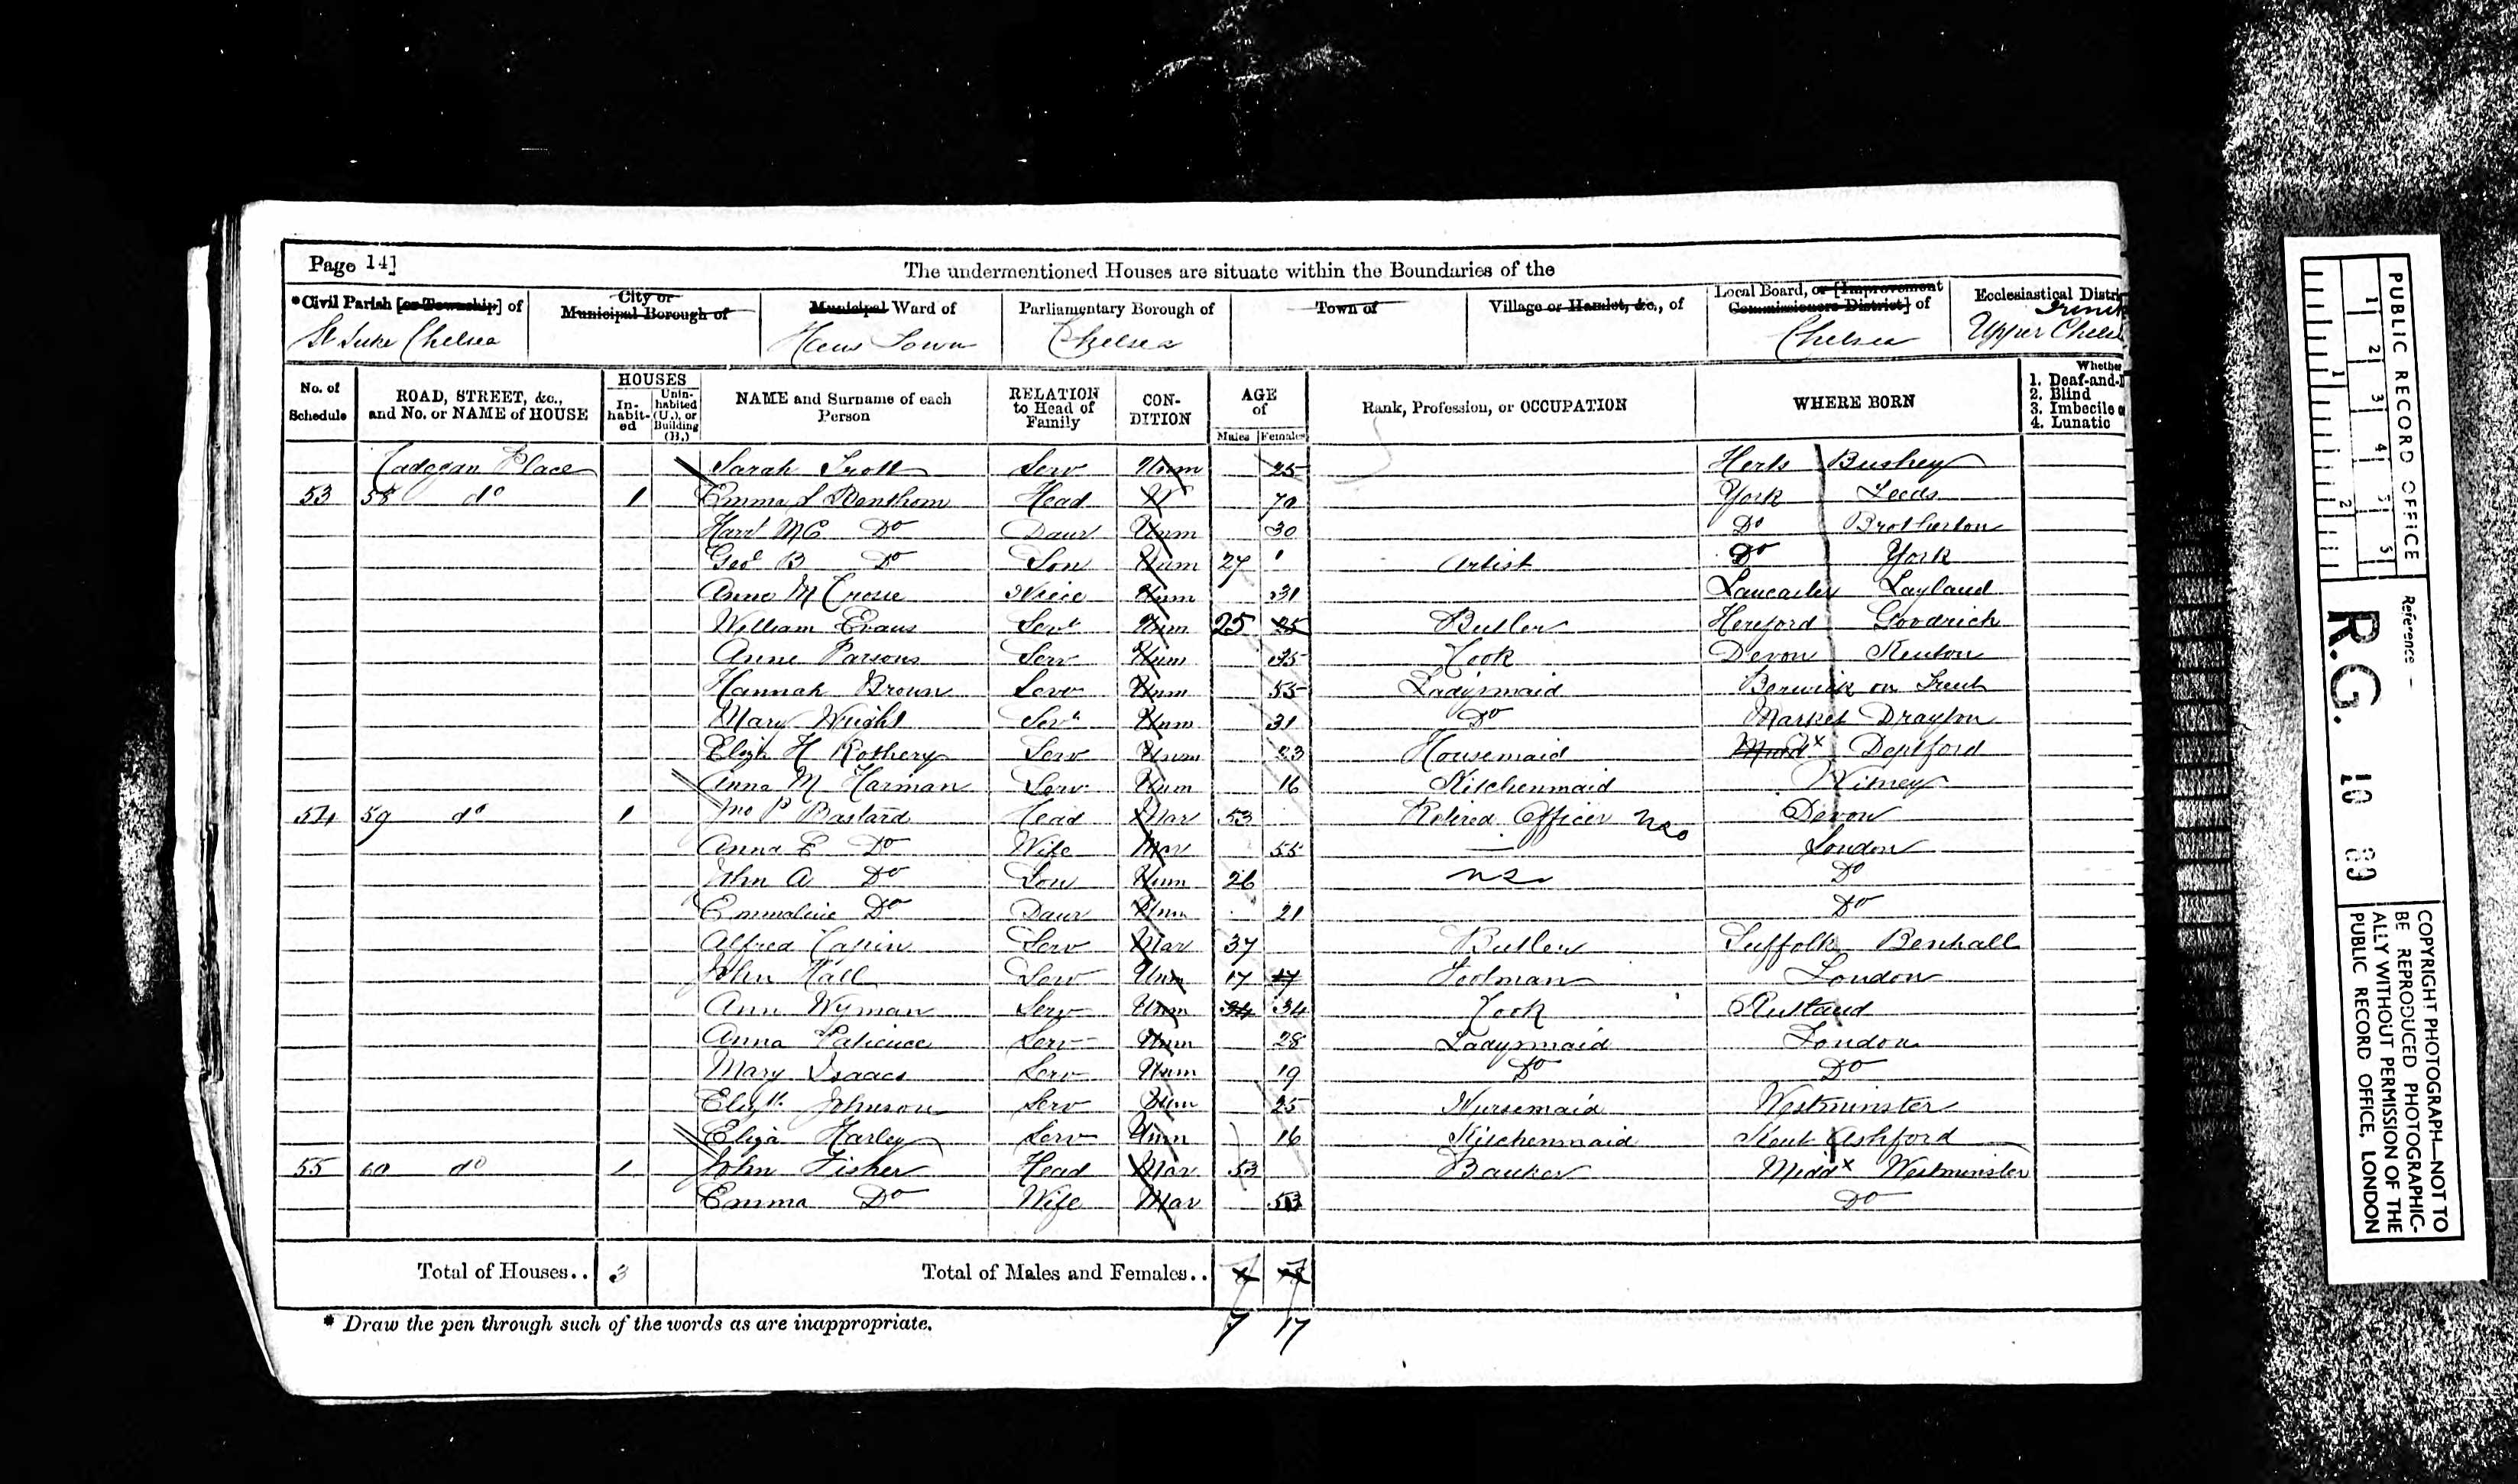 Page 14]
The undermentioned Houses are situate within the Boundaries of the
*Civil Parish [or Township] of
City or Municipal Borough of
Municipal Ward of
Parliamentary Borough of
Town of
Village or Hamlet, &c., of
Local Board, or [Improvement Commissioners District] of
Ecclesiastical Distri
St Luke Chelsea
Hans Town
Chelsea
Chelsea
Upper Chels
No. of Schedule
ROAD, STREET, &c., and No. or NAME of HOUSE
HOUSES
In-habit-ed
Unin-habited (U.), or Building (B.)
NAME and Surname of each Person
RELATION to Head of Family
CON-DITION
AGE of
Males Females
Rank, Profession, or OCCUPATION
WHERE BORN
Whether
1. Deaf-and-D
2. Blind
3. Imbecile o
4. Lunatic
Cadogan Place Sarah Trott Serv Unm 25 Herts Bushey
53 58 do 1 Emma S Head W 70 York Leeds
Harrt M C Do Daur Unm 30 Do Brotherton
Geoe B Do Son Unm 27 Artist Do York
Anne M Crosse Niece Unm 31 Lancaster Layland
William Evans Servt Unm 25 25 Butler Hereford Goodrich
Anne Parsons Serv Unm 35 Cook Devon Kenton
Hannah Brown Serv Unm 55 Ladysmaid Berwick on
Mary Wright Servt Unm 31 Do Market Drayton
Eliza H Rothery Serv Unm 23 Housemaid Middx Deptford
Anna M Harman Serv Unm 16 Kitchenmaid Witney
54 59 do 1 Jno P Bastard Head Mar 53 Retired Officer Devon
Anna E Do Wife Mar 55 — London
John A Do Son Unm 26 Do
Emmaline Do Daur Unm 21 Do
Alfred Serv Mar 37 Butler Suffolk Benhall
John Hall Serv Unm 17 17 Footman London
Ann Wyman Serv Unm 34 34 Cook Rutland
Anna Patience Serv Unm 28 Ladysmaid London
Mary Isaacs Serv Unm 19 Do Do
Elizth Johnson Serv Unm 25 Nursemaid Westminster
Eliza Harley Serv Unm 16 Kitchenmaid Kent Ashford
55 60 do 1 John Fisher Head Mar 53 Banker Middx Westminster
Emma Do Wife Mar Do
Total of Houses.. 3
Total of Males and Females..
7 17
* Draw the pen through such of the words as are inappropriate.
PUBLIC RECORD OFFICE
1 2 3 4 5
1 2
Reference -
R.G. 10 89
COPYRIGHT PHOTOGRAPH—NOT TO
BE REPRODUCED PHOTOGRAPHIC-
ALLY WITHOUT PERMISSION OF THE
PUBLIC RECORD OFFICE, LONDON